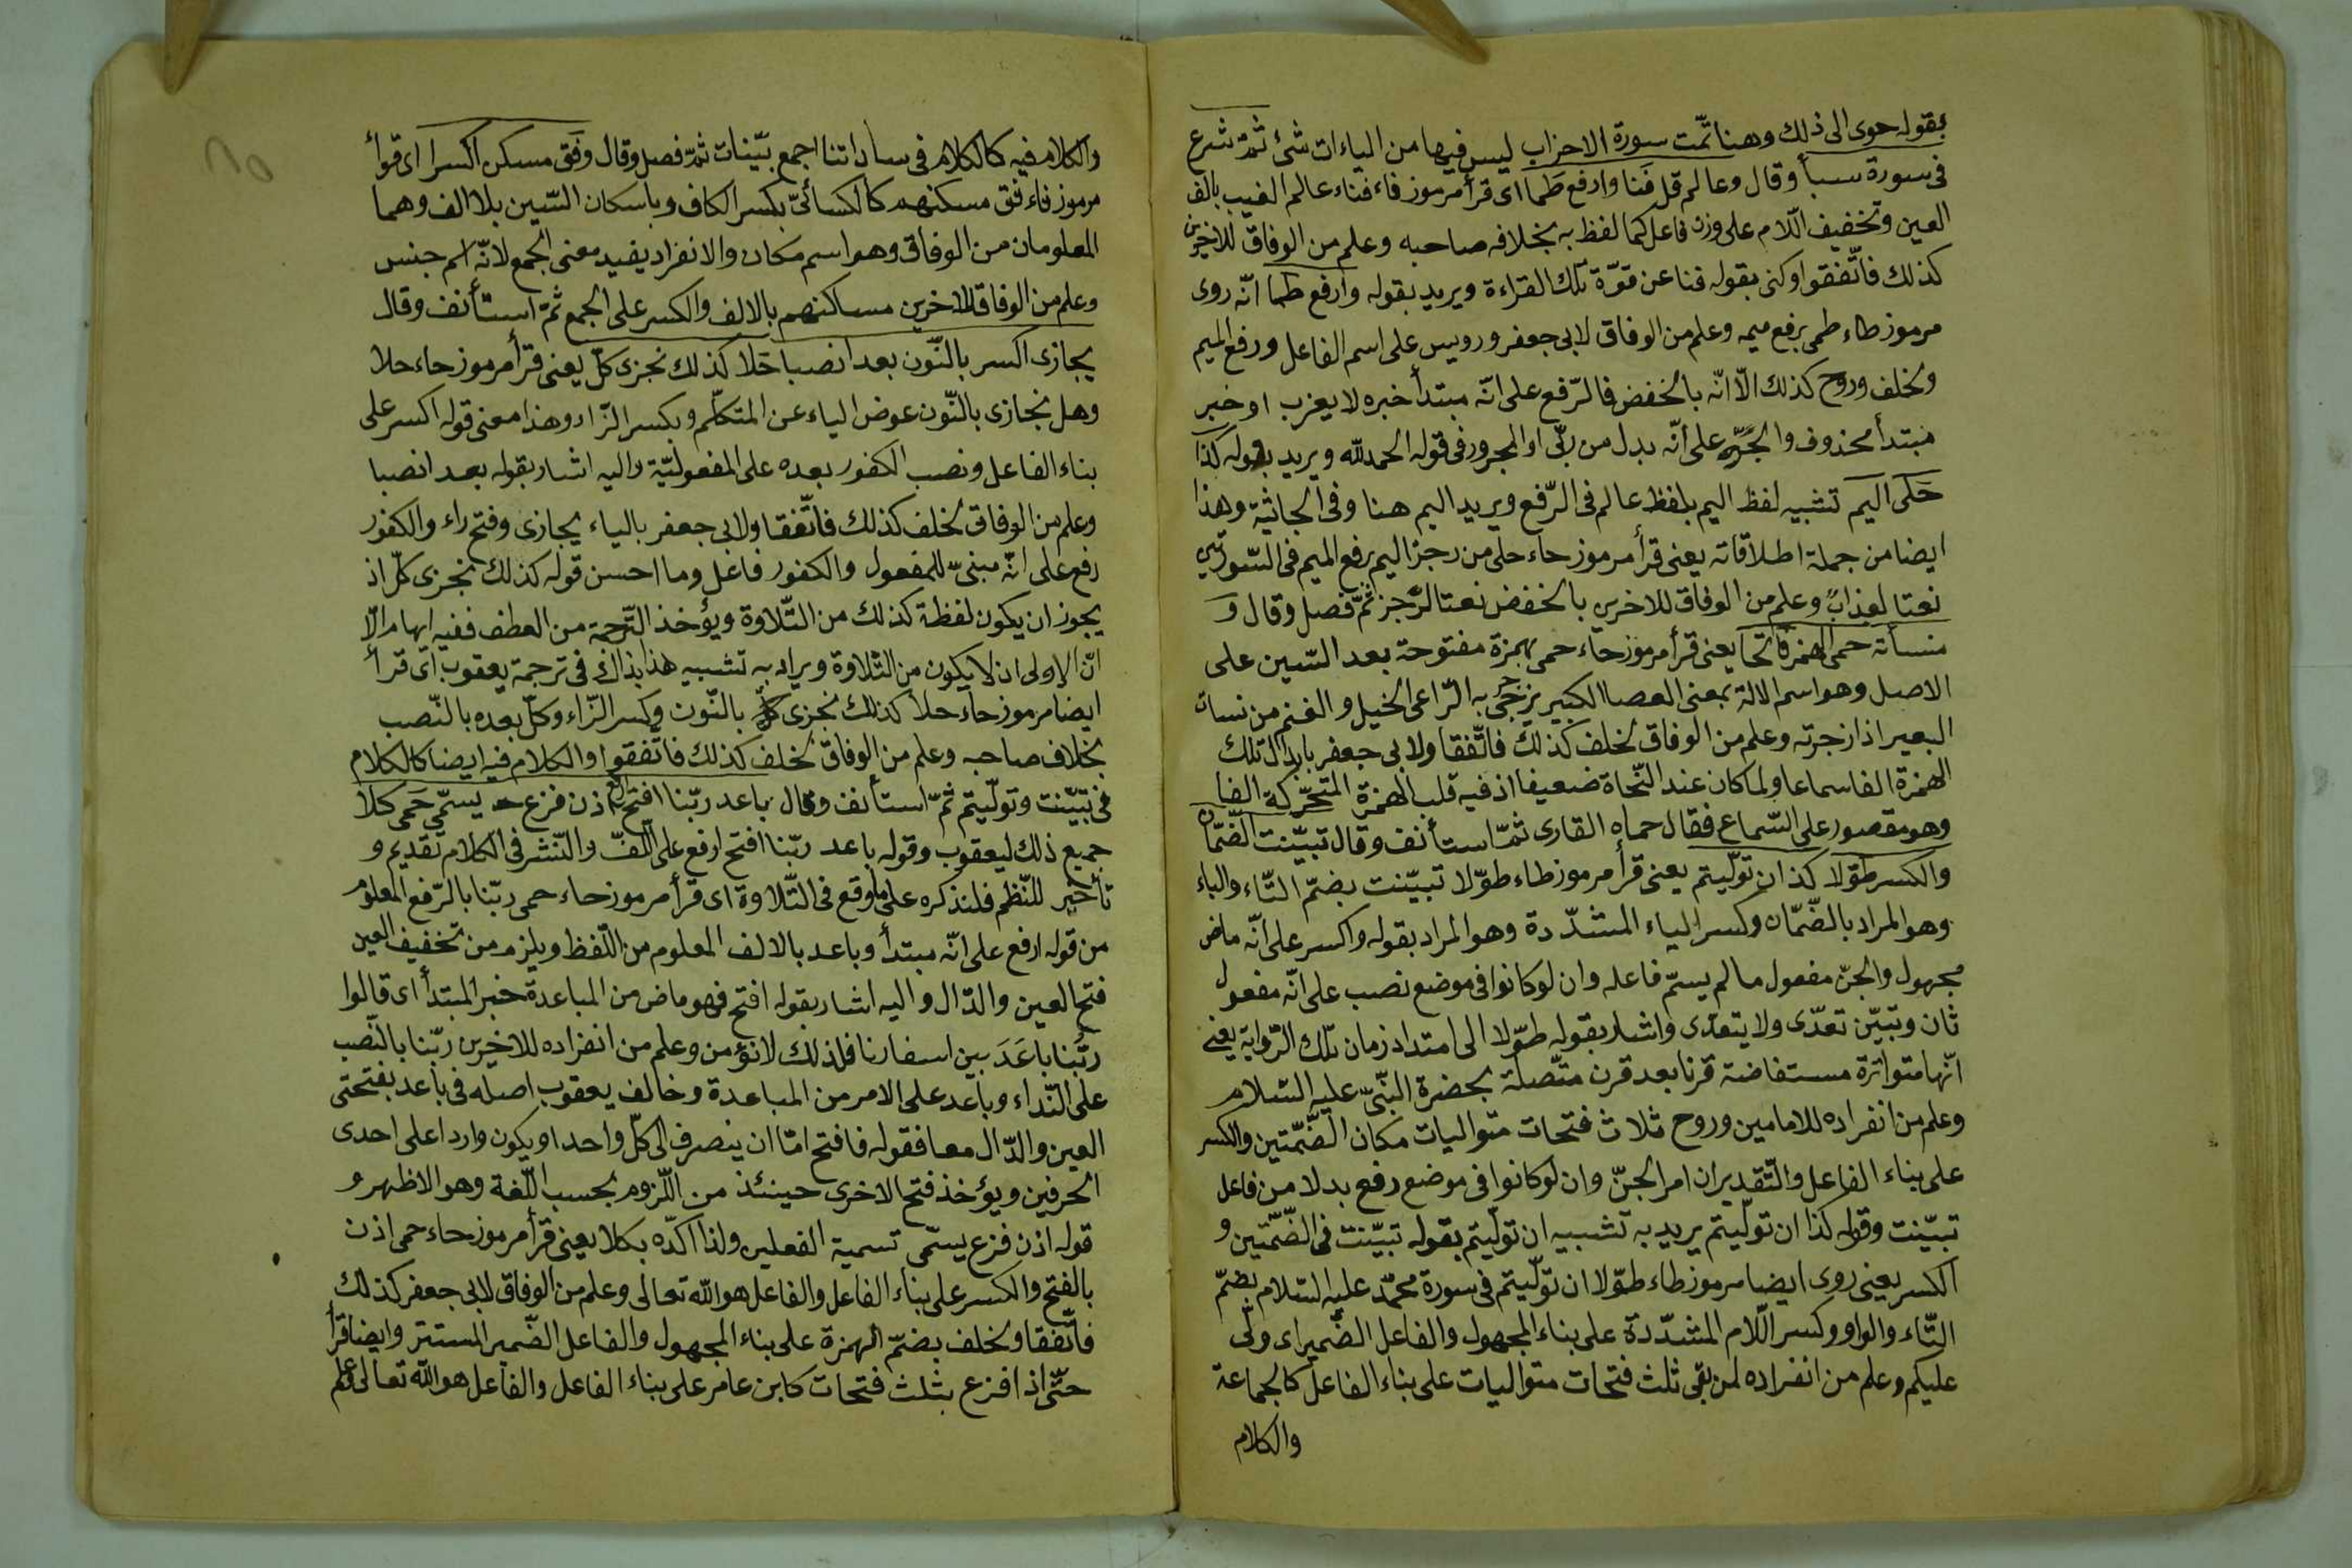 بقوله حوى الى ذلك وهنا تمّت سورة الاحزاب ليس فيها من الياءات شئ ثمّ شرع
فى سورة سبأ وقال وعالم قل فَنا وارفع طَما اى قرأ مرموز فاء فناء عالم الغيب بالف
العين وتخفيف اللّام على وزن فاعل كما لفظ به بخلافه صاحبه وعلم من الوفاق للاخرين
كذلك فاتّفقوا وكنى بقوله فنا عن قوّة تلك القراءة ويريد بقوله وارفع طما انّه روى
مرموز طاء طمى برفع ميمه وعلم من الوفاق لابى جعفر ورويس على اسم الفاعل ورفع الميم
ولخلف وروح كذلك الّا انّه بالخفض فالرّفع على انّه مبتدأ خبره لا يعزب او خبر
مبتدأ محذوف والجرّ على أنّه بدل من ربّى او المجرور فى قوله الحمد لله ويريد بقوله كذا
حَلى اليم تشبيه لفظ اليم بلفظ عالم فى الرّفع ويريد اليم هنا وفى الجاثية وهذا
ايضا من جملة اطلاقاته يعنى قرأ مرموز حاء حلى من رجز اليم برفع الميم فى السّورتين
نعتا لعذاب وعلم من الوفاق للاخرين بالخفض نعتا لرّجز ثمّ فصل وقال و
منسأته حمى الهمز فاتحا يعنى قرأ مرموز حاء حمى بهمزة مفتوحة بعد السّين على
الاصل وهو اسم الالة بمعنى العصا الكبير يزجى به الرّاعى الخيل والغنم من نسات
البعير اذا زجرته وعلم من الوفاق لخلف كذلك فاتّفقا ولابى جعفر بابدال تلك
الهمزة الفا سماعا ولما كان عند النّحاة ضعيفا اذ فيه قلب الهمزة المتحرّكة الفا
وهو مقصور على السّماع فقال حماه القارى ثمّ استأنف وقال تبيّنت الضّمّان
والكسر طوّلا كذا ان تولّيتم يعنى قرأ مرموز طاء طوّلا تبيّنت بضمّ التّاء والباء
وهو المراد بالضّمّان وكسر الياء المشدّدة وهو المراد بقوله واكسر على انّه ماض
مجهول والجنّ مفعول ما لم يسمّ فاعله وان لو كانوا فى موضع نصب على انّه مفعول
ثان وتبيّن تعدّى ولا يتعدّى واشار بقوله طوّلا الى امتداد زمان تلك الرّواية يعنى
انّها متواترة مستفاضة قرنا بعد قرن متّصلة بحضرة النّبىّ عليه السّلام
وعلم من انفراده للامامين وروح ثلاث فتحات متواليات مكان الضّمّتين والكسر
على بناء الفاعل والتّقدير ان امر الجنّ وان لو كانوا فى موضع رفع بدلا من فاعل
تبيّنت وقوله كذا ان تولّيتم يريد به تشبيه ان تولّيتم بقوله تبيّنت فى الضّمّتين و
الكسر يعنى روى ايضا مرموز طاء طوّلا ان تولّيتم فى سورة محمّد عليه السّلام بضمّ
التّاء والواو وكسر اللّام المشدّدة على بناء المجهول والفاعل الضّمير اى ولّى
عليكم وعلم من انفراده لمن بقى ثلث فتحات متواليات على بناء الفاعل كالجماعة
والكلام
والكلام فيه كالكلام فى ساداتنا اجمع بيّنات ثمّ فصل وقال وفَق مسكن اكسرا اى قرأ
مرموز فاء فق مسكنهم كالكسائىّ بكسر الكاف وباسكان السّين بلا الف وهما
المعلومان من الوفاق وهو اسم مكان والانفراد يفيد معنى الجمع لانّه اسم جنس
وعلم من الوفاق للاخرين مساكنهم بالالف والكسر على الجمع ثمّ استأنف وقال
يجازى اكسر بالنّون بعد انصبا حَلا كذلك نجزى كلّ يعنى قرأ مرموز حاء حلا
وهل نجازى بالنّون عوض الياء عن المتكلّم وبكسر الزّاء وهذا معنى قوله اكسر على
بناء الفاعل ونصب الكفور بعده على المفعوليّة واليه اشار بقوله بعد انصبا
وعلم من الوفاق لخلف كذلك فاتّفقا ولابى جعفر بالياء يجازى وفتح راء والكفور
رفع على انّه مبنىّ للمفعول والكفور فاعل وما احسن قوله كذلك نجزى كلّ اذ
يجوز ان يكون لفظة كذلك من التّلاوة ويؤخذ التّرجمة من العطف ففيه ايهام الّا
انّ الاولى ان لا يكون من التّلاوة ويراد به تشبيه هذا بذاك فى ترجمة يعقوب اى قرأ
ايضا مرموز حاء حلا كذلك نجزى كلّ بالنّون وكسر الزّاء وكلّ بعده بالنّصب
بخلاف صاحبه وعلم من الوفاق لخلف كذلك فاتّفقوا والكلام فيه ايضا كالكلام
فى تبيّنت وتولّيتم ثمّ استأنف وقال باعد ربّنا افتح ارفع اذن فزع يسمّى حَمى كلا
جميع ذلك ليعقوب وقوله باعد ربّنا افتح ارفع على اللّفّ والنّشر فى الكلام تقديم و
تأخير للنّظم فلنذكره على ما وقع فى التّلاوة اى قرأ مرموز حاء حمى ربّنا بالرّفع المعلوم
من قوله ارفع على انّه مبتدأ وباعد بالالف المعلوم من اللّفظ ويلزم من تخفيف العين
فتح العين والدّال واليه اشار بقوله افتح فهو ماض من المباعدة خبر المبتدأ اى قالوا
ربّنا باعَدَ بين اسفارنا فلذلك لا نؤمن وعلم من انفراده للاخرين ربّنا بالنّصب
على النّداء وباعد على الامر من المباعدة وخالف يعقوب اصله فى باعد بفتحتى
العين والدّال معا فقوله فافتح امّا ان ينصرف الى كلّ واحد او يكون واردا على احدى
الحرفين ويؤخذ فتح الاخرى حينئذ من اللّزوم بحسب اللّغة وهو الاظهر و
قوله اذن فزع يسمّى تسمية الفعلين ولذا اكدّه بكلا يعنى قرأ مرموز حاء حمى اذن
بالفتح والكسر على بناء الفاعل والفاعل هو الله تعالى وعلم من الوفاق لابى جعفر كذلك
فاتّفقا ولخلف بضمّ الهمزة على بناء المجهول والفاعل الضّمير المستتر وايضا قرأ
حتّى اذا فزع بثلث فتحات كابن عامر على بناء الفاعل والفاعل هو الله تعالى علم